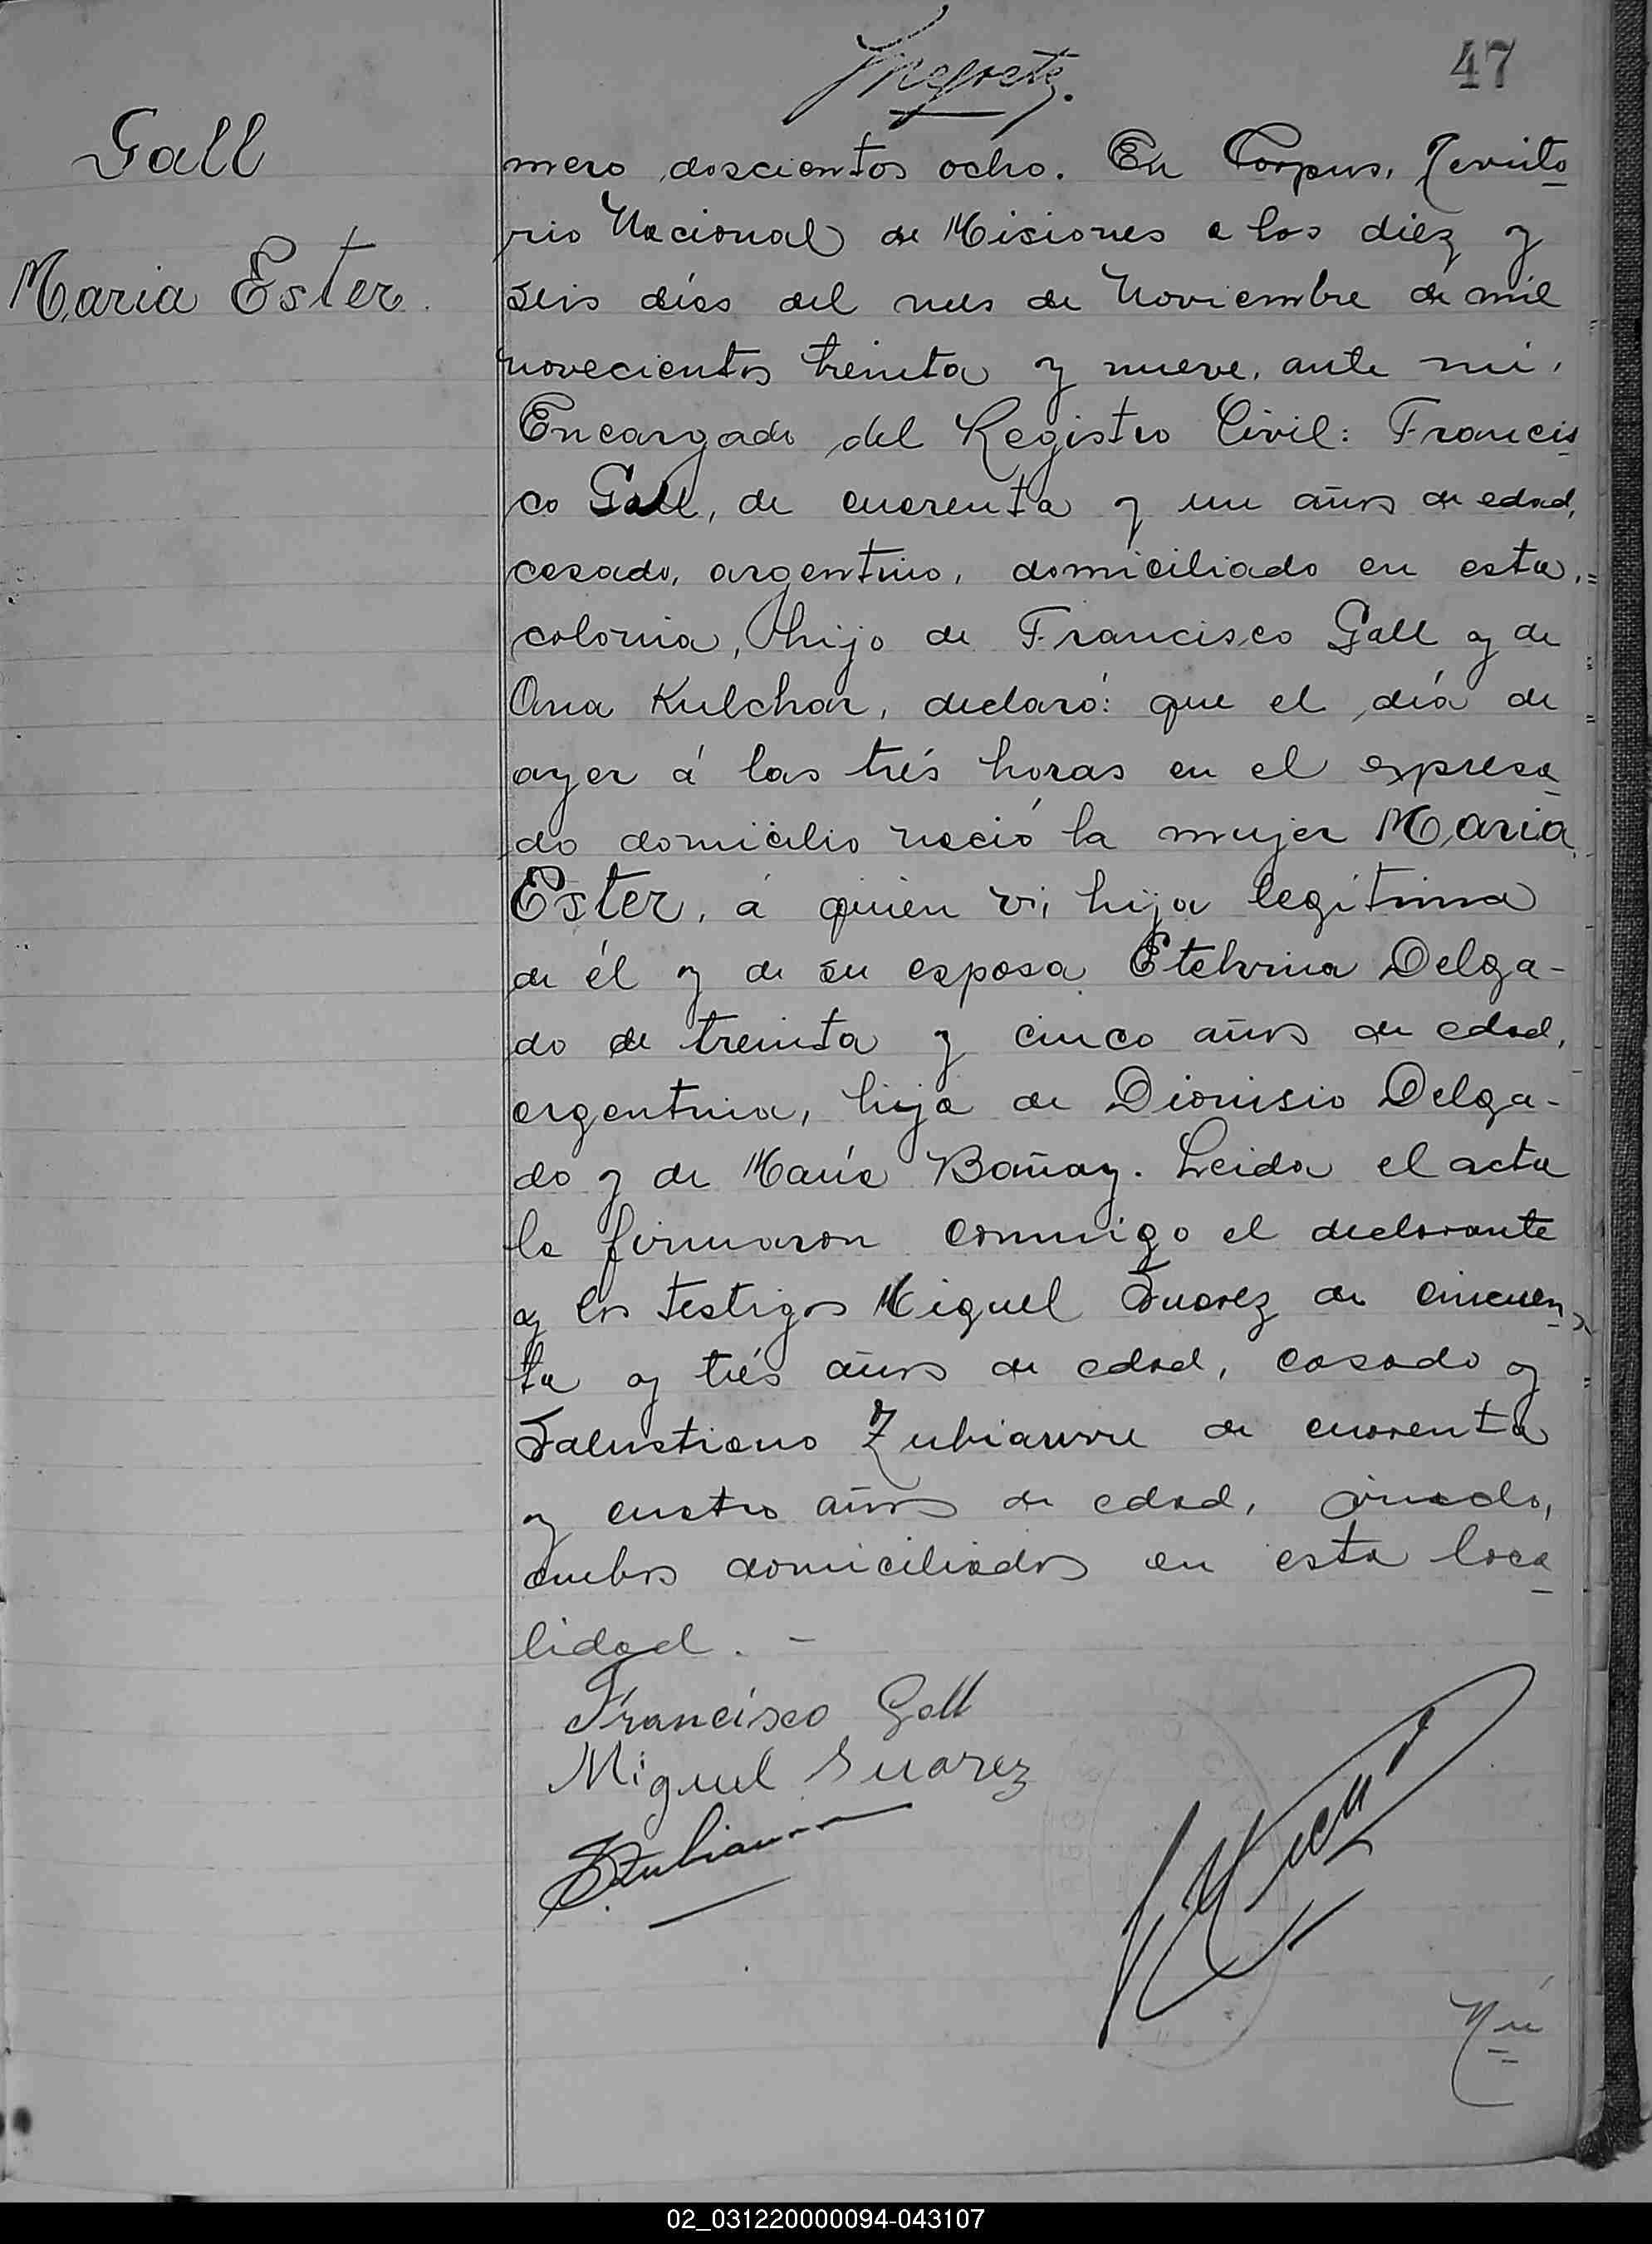 47
Gall
Maria Ester.
mero doscientos ocho. En Corpus, Territo
rio Nacional de Misiones a los diez y
seis días del mes de Noviembre de mil
novecientos treinta y nueve, ante mí,
Encargado del Registro Civil: Francis
co Gall, de cuarenta y un años de edad,
casado, argentino, domiciliado en esta
colonia, hijo de Francisco Gall y de
Ana Kulchar, declaró: que el día de
ayer á las trés horas en el expresa
do domicilio nació la mujer Maria
Ester, á quien vi, hija legítima
de él y de su esposa Etelvina Delga-
do de treinta y cinco años de edad,
argentina, hija de Dionisio Delga-
do y de María Bañay. Leida el acta
la firmaron conmigo el declarante
y los testigos Miguel Suarez de cincuen
ta y trés años de edad, casado y
Salustiano Zubiaurre de cuarenta
y cuatro años de edad,
ambos domiciliados en esta loca
lidad. -
Francisco Gall
Miguel Suarez
Nú
02_031220000094-043107